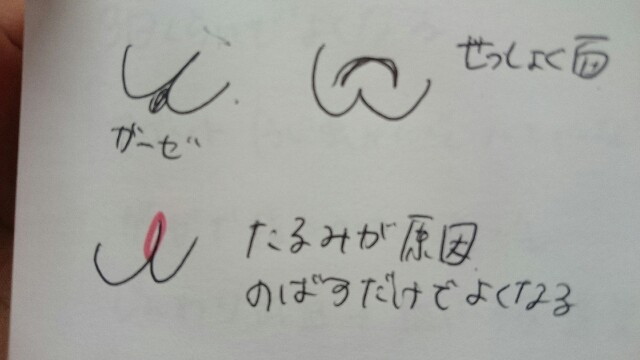 せっしょく面
ガーゼ
たるみが原因
のばすだけでよくなる